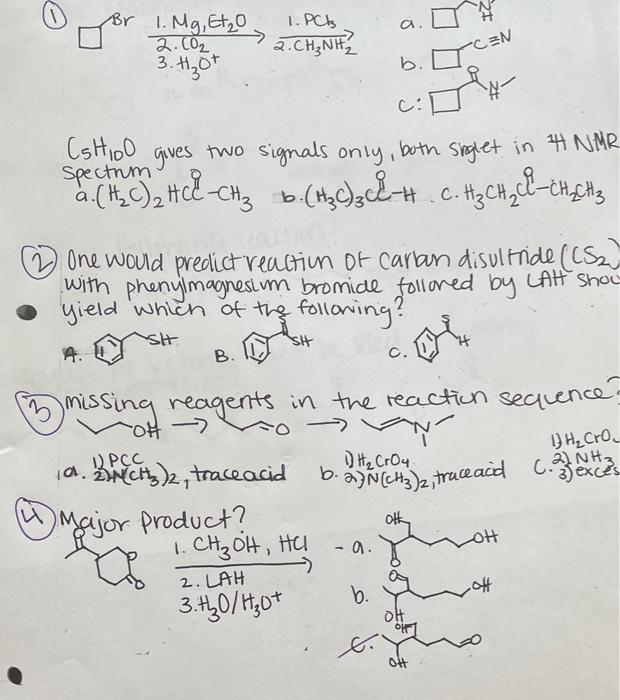 ① Br 1. Mg, Et₂O 1. PCl₃ a. N H
2. CO₂ 2. CH₃NH₂ b. C≡N
3. H₃O⁺ c: O N H
C₅H₁₀O gives two signals only, both singlet in ¹H NMR
spectrum
a. (H₂C)₂HCC-CH₃ O b. (H₃C)₃CC-H O . C. H₃CH₂C-CH₂CH₃ O
② One would predict reaction of carbon disulfide (CS₂)
with phenylmagnesium bromide followed by LAH shou
yield which of the following?
A. SH B. S SH C. S H
③ missing reagents in the reaction sequence?
OH → O → N
a. 1) PCC 2) N(CH₃)₂, trace acid b. 1) H₂CrO₄ 2) N(CH₃)₂, trace acid C. 1) H₂CrO 2) NH₃ 3) exces
④ Major product?
O O O 1. CH₃OH, HCl - a. OH O OH
2. LAH b. O OH OH
3. H₂O/H₃O⁺ c. OH OH O